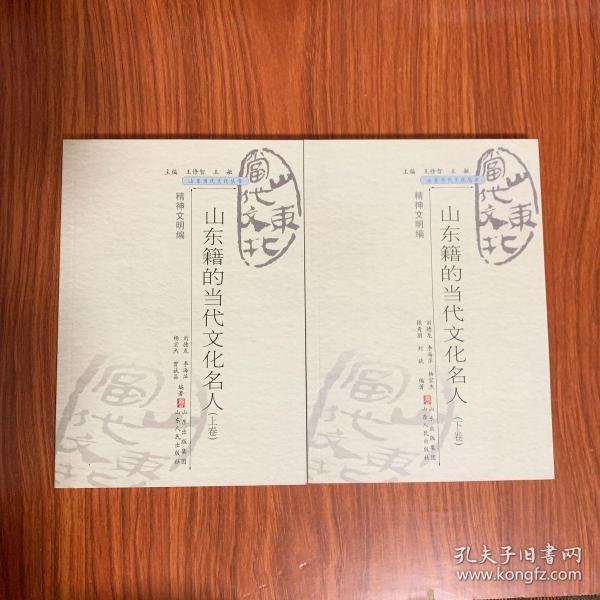 主编 王修智 王敏
山东当代文化丛书
山东当代文化
精神文明编
山东籍的当代文化名人(上卷)
刘德龙 李海萍
杨宗杰 曹斌磊 编著
山东出版集团
山东人民出版社
主编 王修智 王敏
山东当代文化丛书
山东当代文化
精神文明编
山东籍的当代文化名人(下卷)
刘德龙 李海萍 杨宗杰
张青丽 刘斌 编著
山东出版集团
山东人民出版社
孔夫子旧书网
www.kongfz.com